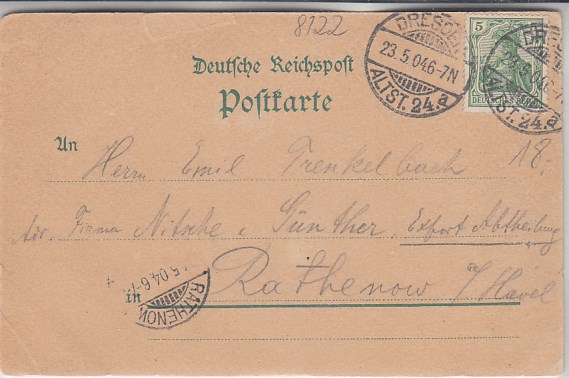 8122
DRESDEN
23.5.04.6-7N
ALTST. 24.a
5
DEUTSCHES
DRESDEN
ALTST. 24.a
Deutsche Reichspost
Postkarte
An
Herrn Emil Trenkelbach
18.
Adr. Firma Nitsche & Günther, Export Abtheilung
in Rathenow a/Havel
5.04.6-
RATHENOW